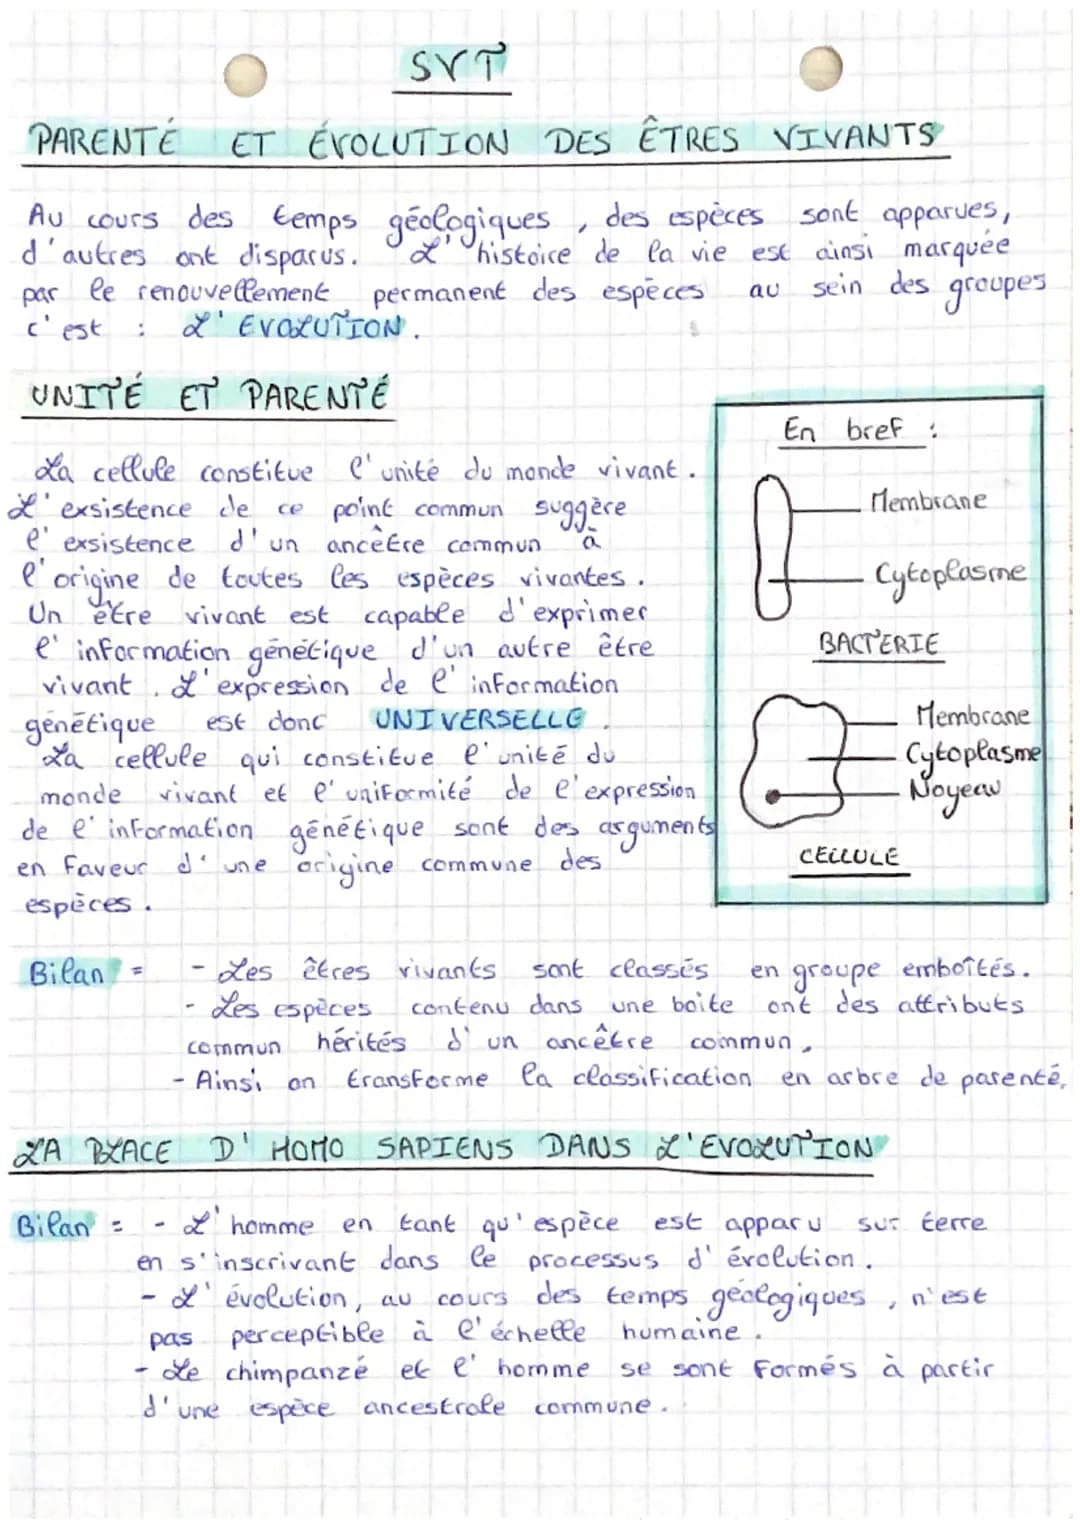 SVT
PARENTÉ ET ÉVOLUTION DES ÊTRES VIVANTS
Au cours des temps géologiques, des espèces sont apparues,
d'autres ont disparus. L'histoire de la vie est ainsi marquée
par le renouvellement permanent des espèces au sein des groupes
c'est : L'EVOLUTION.
UNITÉ ET PARENTÉ
La cellule constitue l'unité du monde vivant.
L'exsistence de ce point commun suggère
l'exsistence d'un ancêtre commun à
l'origine de toutes les espèces vivantes.
Un être vivant est capable d'exprimer
l'information génétique d'un autre être
vivant. L'expression de l'information
génétique est donc UNIVERSELLE.
La cellule qui constitue l'unité du
monde vivant et l'uniformité de l'expression
de l'information génétique sont des arguments
en faveur d'une origine commune des
espèces.
En bref :
Membrane
Cytoplasme
BACTERIE
Membrane
Cytoplasme
Noyeau
CELLULE
Bilan = - Les êtres vivants sont classés en groupe emboîtés.
- Les espèces contenu dans une boite ont des attributs
commun hérités d'un ancêtre commun.
- Ainsi on transforme la classification en arbre de parenté.
LA PLACE D'HOMO SAPIENS DANS L'EVOLUTION
Bilan = - L'homme en tant qu'espèce est apparu sur terre
en s'inscrivant dans le processus d'évolution.
- L'évolution, au cours des temps géologiques, n'est
pas perceptible à l'échelle humaine.
- Le chimpanzé et l'homme se sont formés à partir
d'une espèce ancestrale commune.